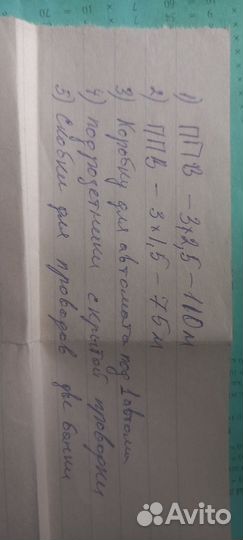 1) ППВ - 3х2,5 - 110м
2) ППВ - 3х1,5 - 75м
3) Коробку для автомата под 1 автомат
4) подрозетники скрытой проводки
5) скобки для проводов две банки
Avito